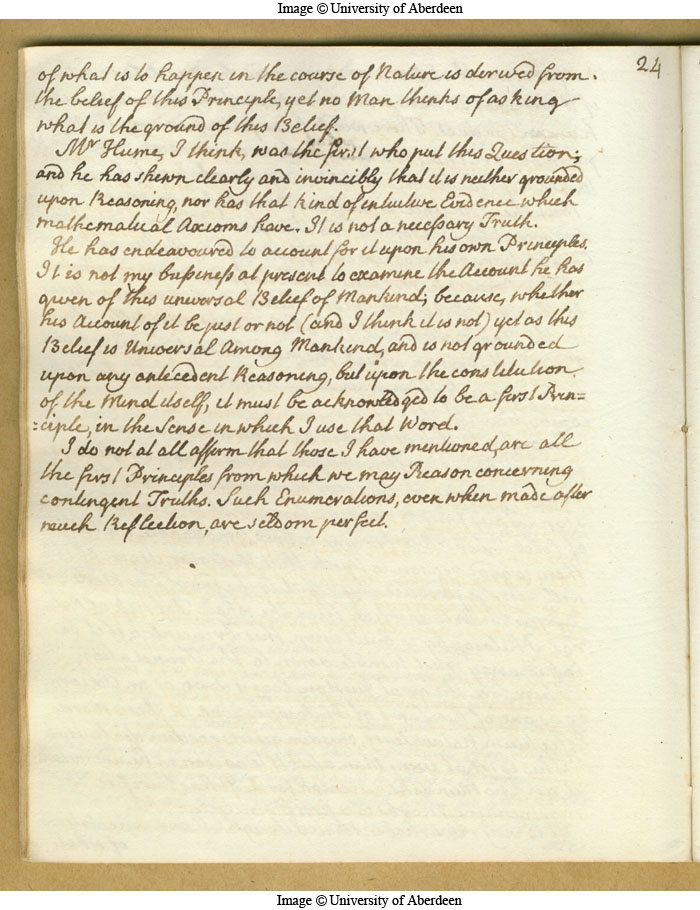 Image © University of Aberdeen
24
of what is to happen in the course of Nature is derived from
the belief of this Principle, yet no Man thinks of asking
what is the ground of this Belief.
Mr Hume, I think, was the first who put this Question;
and he has shewn clearly and invincibly that it is neither grounded
upon Reasoning, nor has that kind of intuitive Evidence which
mathematical Axioms have. It is not a necessary Truth.
He has endeavoured to account for it upon his own Principles.
It is not my business at present to examine the Account he has
given of this universal Belief of Mankind; because, whether
his Account of it be just or not (and I think it is not) yet as this
Belief is Universal Among Mankind, and is not grounded
upon any antecedent Reasoning, but upon the constitution
of the Mind itself, it must be acknowledged to be a first Prin=
=ciple, in the Sense in which I use that Word.
I do not at all affirm that those I have mentioned, are all
the first Principles from which we may Reason concerning
contingent Truths. Such Enumerations, even when made after
much Reflection, are seldom perfect.
Image © University of Aberdeen